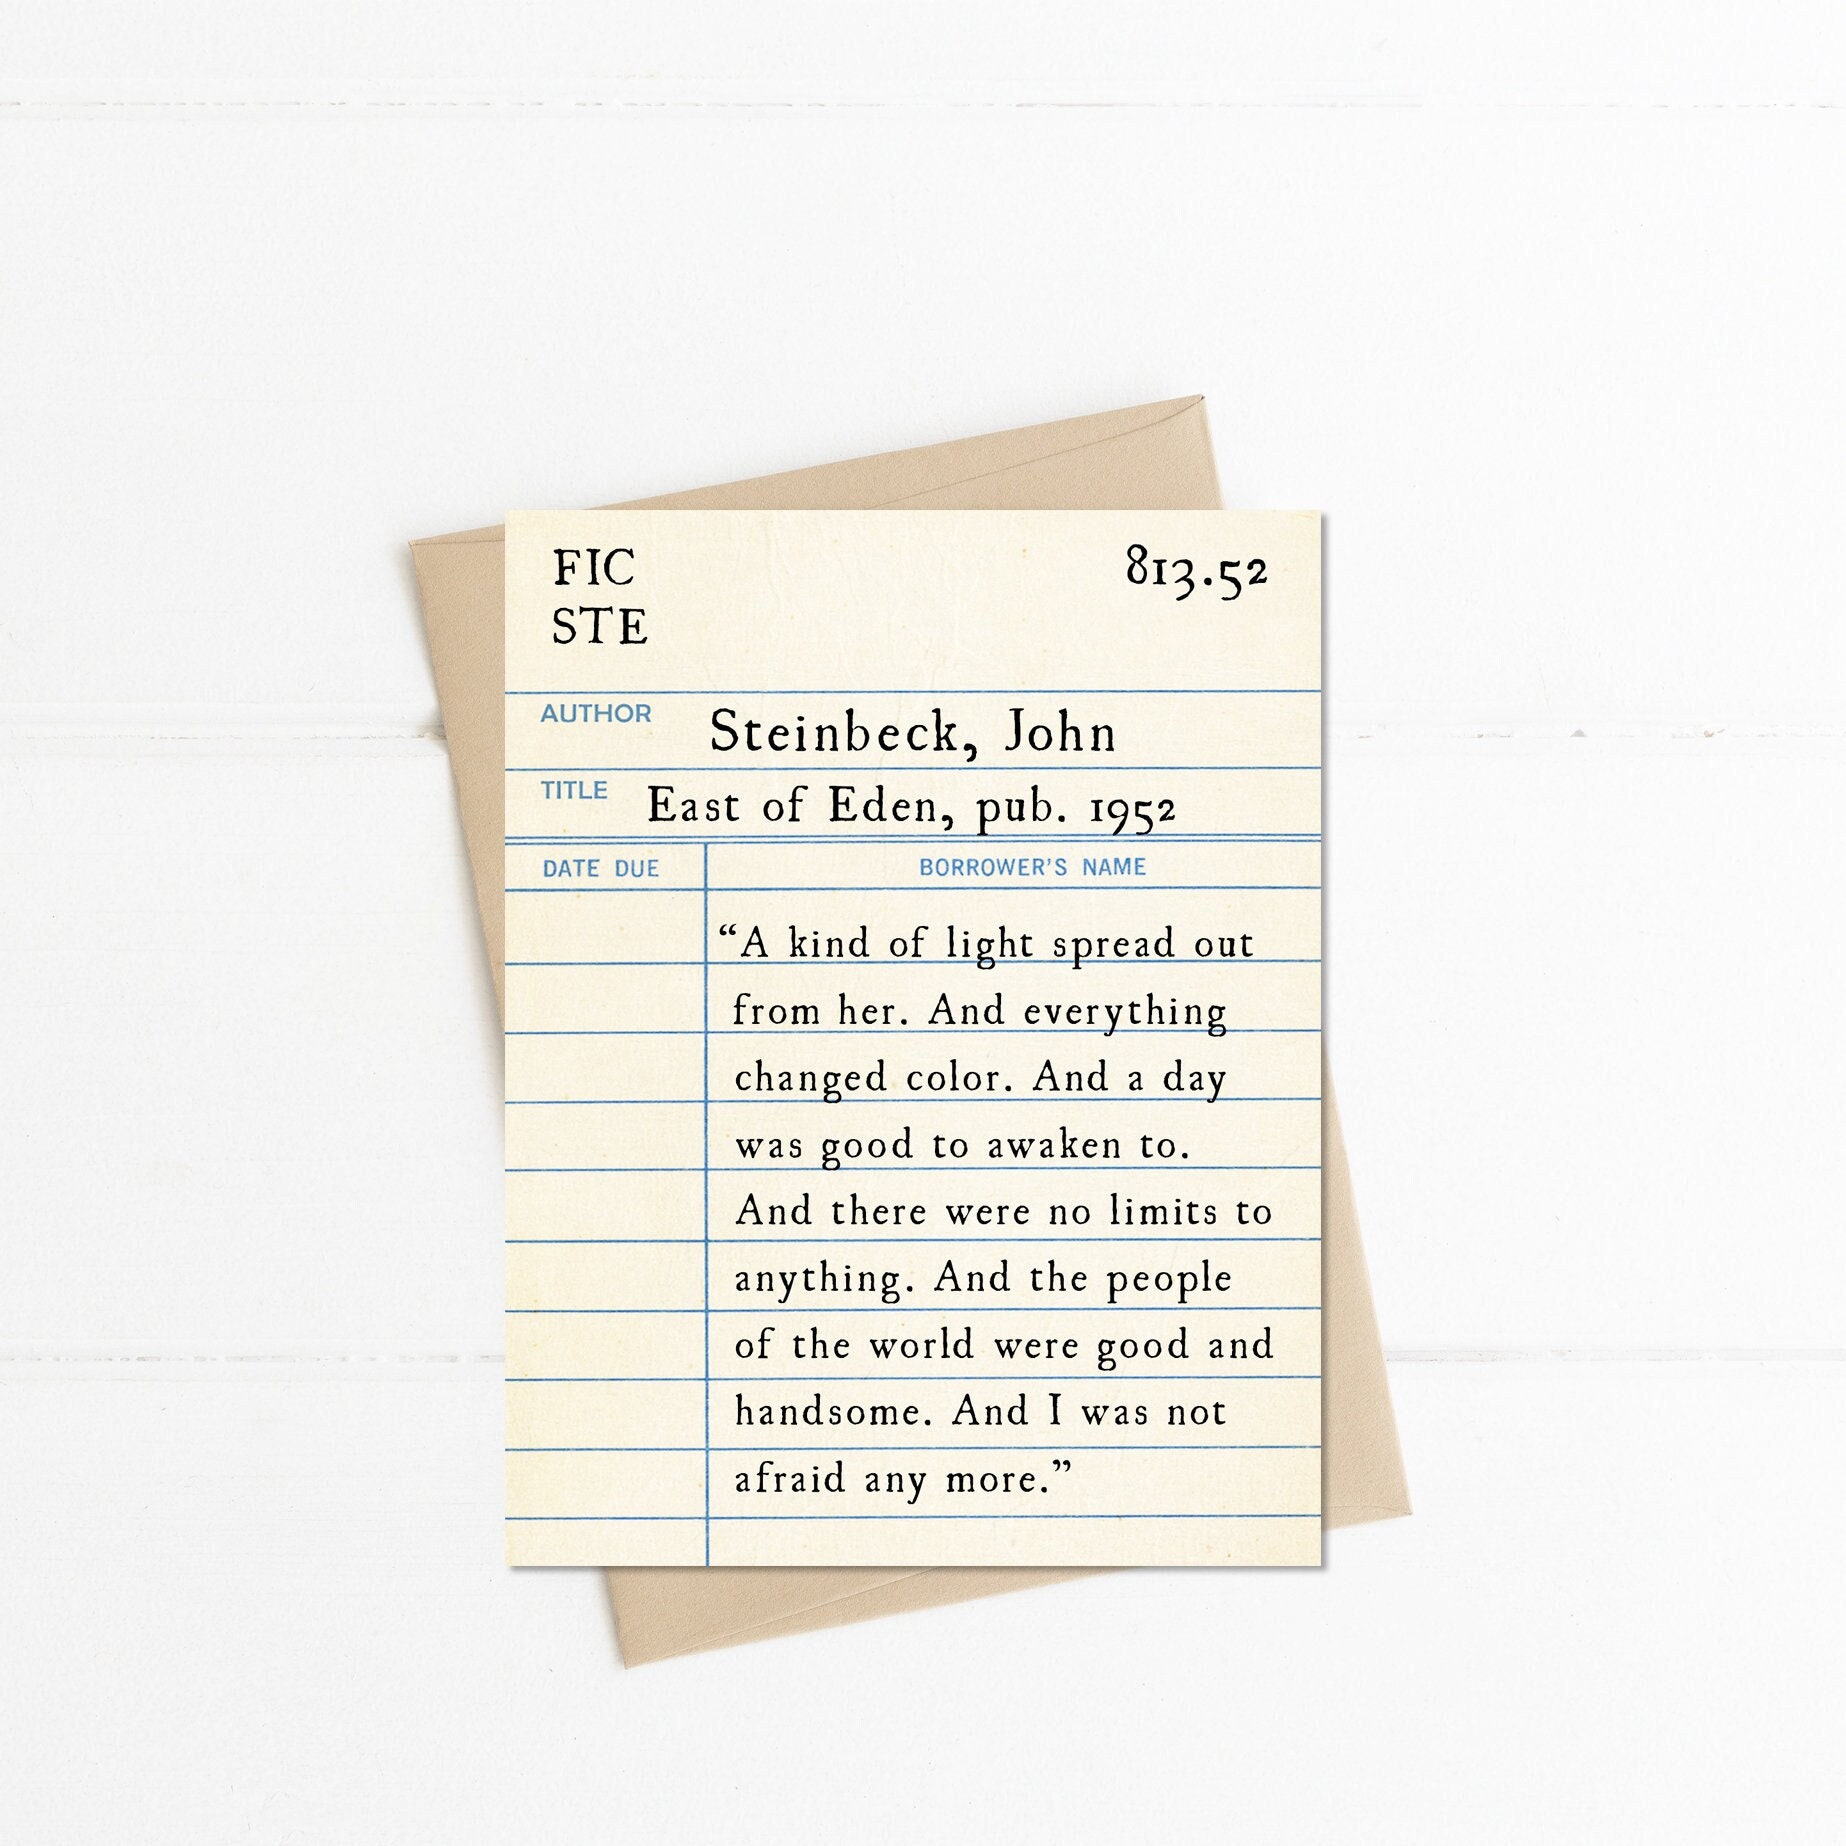 FIC
STE
813.52
AUTHOR Steinbeck, John
TITLE East of Eden, pub. 1952
DATE DUE BORROWER'S NAME
“A kind of light spread out
from her. And everything
changed color. And a day
was good to awaken to.
And there were no limits to
anything. And the people
of the world were good and
handsome. And I was not
afraid any more.”